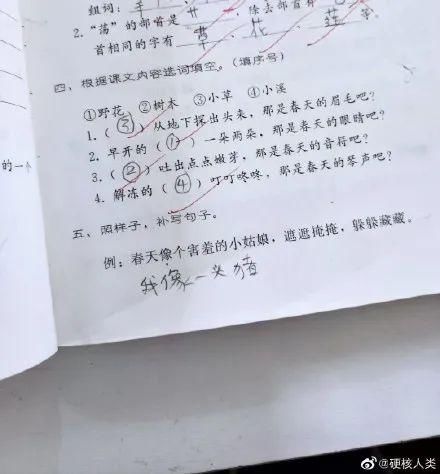 组词：
2."荡"的部首是 艹 ，除去部首
首相同的字有 草 、 花 、 莲 等。
四、根据课文内容选词填空。（填序号）
①野花 ②树木 ③小草 ④小溪
1.（③）从地下探出头来，那是春天的眉毛吧？
2.早开的（①）一朵两朵，那是春天的眼睛吧？
3.（②）吐出点点嫩芽，那是春天的音符吧？
4.解冻的（④）叮叮咚咚，那是春天的琴声吧？
五、照样子，补写句子。
例：春天像个害羞的小姑娘，遮遮掩掩，躲躲藏藏。
我像一头猪
的一个
@硬核人类